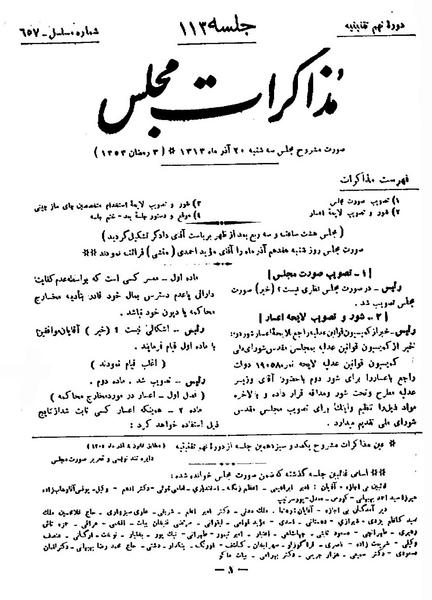 دورهٔ نهم تقنینیه
جلسه ۱۱۳
شماره مسلسل - ۶۵۷
مذاکرات مجلس
صورت مشروح مجلس سه شنبه ۲۰ آذر ماه ۱۳۱۳ * (۳ رمضان ۱۳۵۳)
فهرست مذاکرات
۱) تصویب صورت مجلس
۲) شور و تصویب لایحهٔ اعسار
۳) شور و تصویب لایحهٔ استخدام متخصصین چای سازی چینی
۴) موقع و دستور جلسهٔ بعد - ختم جلسه
(مجلس هشت ساعت و سه ربع بعد از ظهر بریاست آقای دادگر تشکیل گردید)
صورت مجلس روز شنبه هفدهم آذر ماه را آقای مؤید احمدی (منشی) قرائت نمودند
[۱ - تصویب صورت مجلس]
رئیس - در صورت مجلس نظری نیست؟ (خیر) صورت
مجلس تصویب شد.
[۲ - شور و تصویب لایحه اعسار]
رئیس - خبر از کمیسیون قوانین عدلیه راجع بلایحهٔ اعسار شور دوم:
خبر از کمیسیون قوانین عدلیه بمجلس مقدس شورای ملی
کمیسیون قوانین عدلیه لایحه نمره ۱۹۰۵۸ دولت
راجع باعسار را برای شور دوم با حضور آقای وزیر
عدلیه مطرح و تحت شور و مداقه قرار داده و بالاخره
مواد ذیل را تنظیم و اینک برای تصویب مجلس مقدس
شورای ملی تقدیم میدارد.
ماده اول - معسر کسی است که بواسطه عدم کفایت
دارائی یا عدم دسترس بمال خود قادر بتأدیه مخارج
محاکمه یا دیون خود نباشد.
رئیس - اشکالی نیست؟ (خیر) آقایان موافقین
با ماده اول قیام فرمایند.
(اغلب قیام نمودند)
رئیس - تصویب شد. ماده دوم.
(فصل اول - اعسار در مورد مخارج محاکمه)
ماده ۲ - همینکه اعسار کسی ثابت شد از نتایج
ذیل استفاده خواهد کرد:
* عین مذاکرات مشروح یکصد و سیزدهمین جلسه از دورهٔ نهم تقنینیه
دایره تند نویسی و تحریر صورت مجلس
* اسامی غائبین جلسه گذشته که ضمن صورت مجلس خوانده شده:
- ۱ -